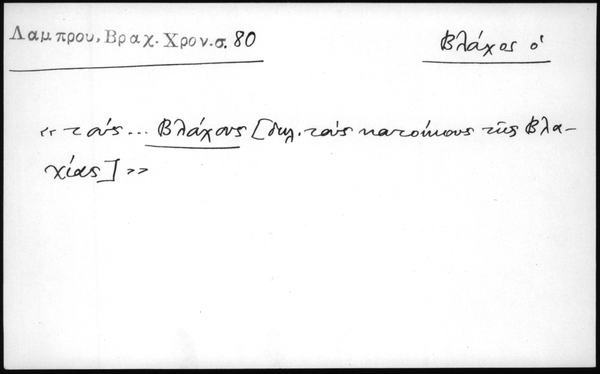 Λαμπρου, Βραχ. Χρον. σ. 80
Βλάχος ὁ
«τοὺς... Βλάχους [δηλ. τοὺς κατοίκους τῆς Βλα-
χίας]»